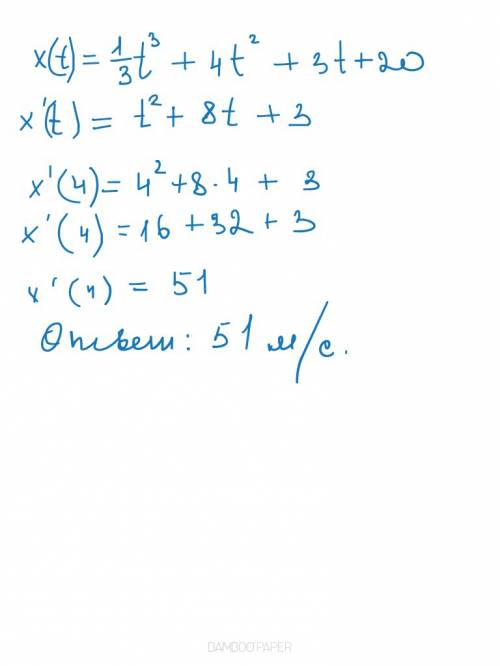 x(t) = 1/3 t³ + 4t² + 3t + 20
x'(t) = t² + 8t + 3
x'(4) = 4² + 8 · 4 + 3
x'(4) = 16 + 32 + 3
x'(4) = 51
Ответ: 51 м/с.
BAMBOOPAPER